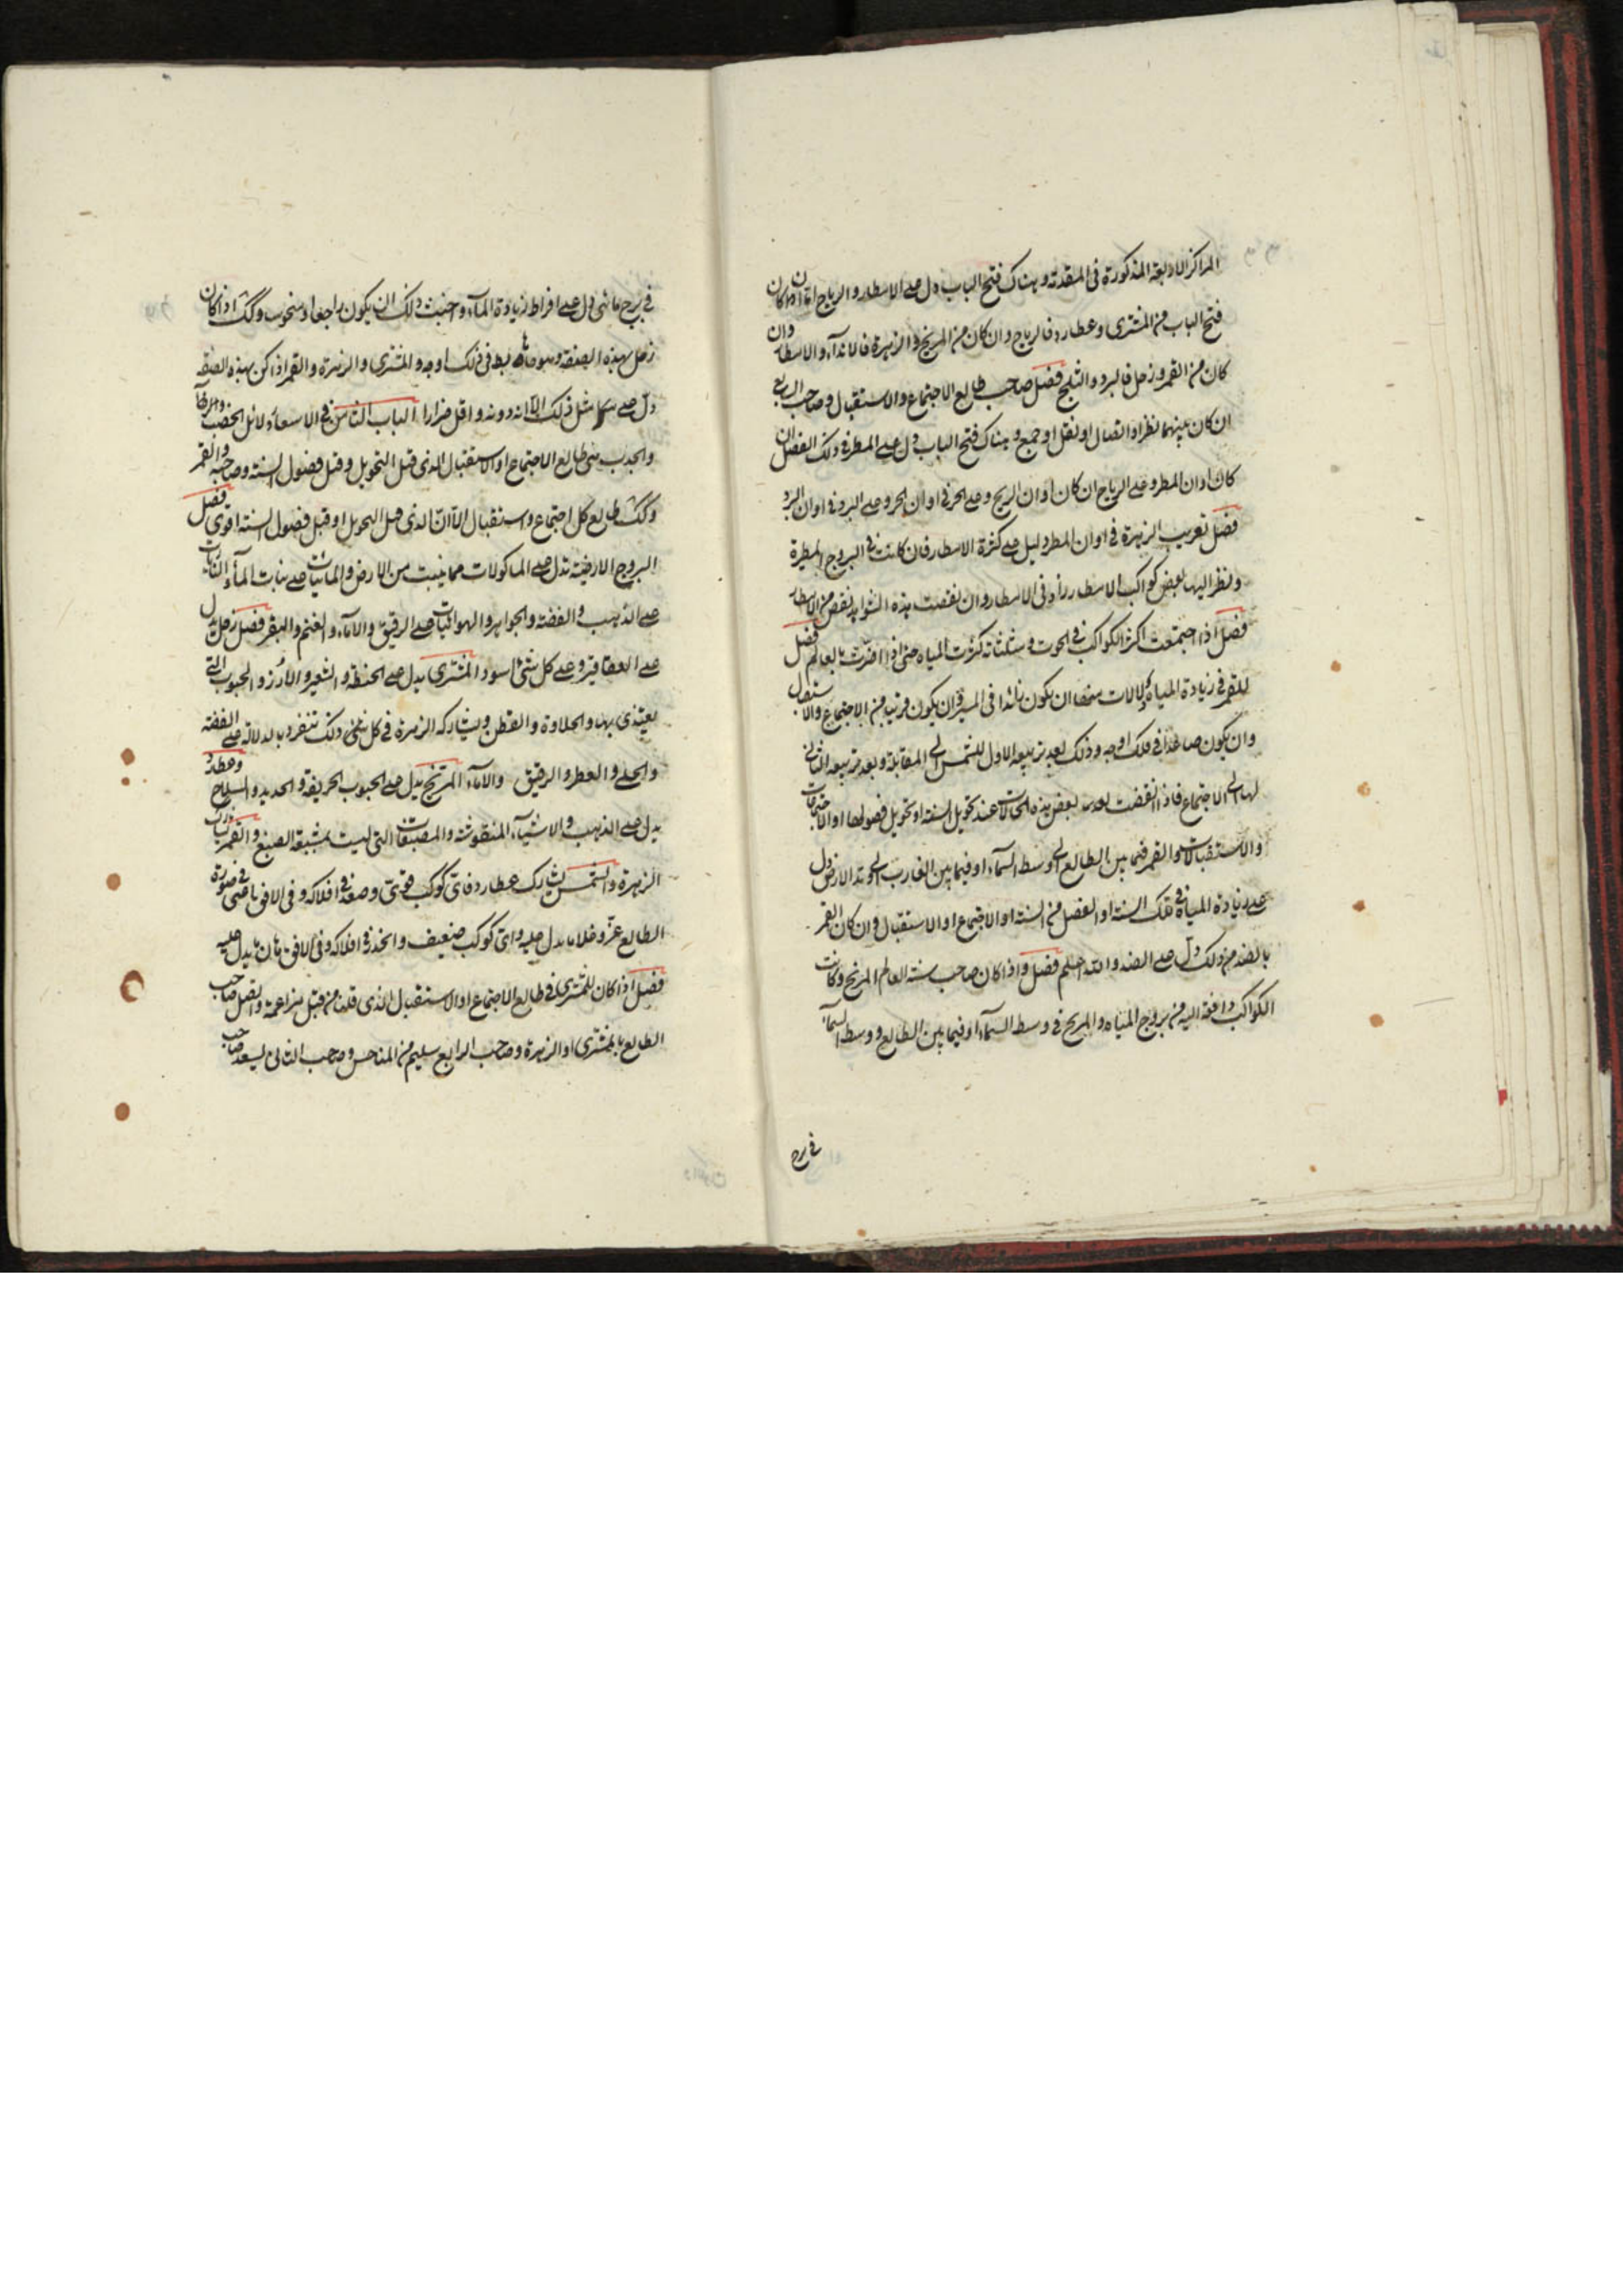 المراكز الاربعة المذكورة فى المقدمة وهناك فتح الباب دل على الامطار والرياح اذا كان
فتح الباب من المشترى وعطارد فالرياح وان كان من المريخ والزهرة فالانداء والامطار وان
كان من القمر وزحل فالبرد والثلج فصل صاحب طالع الاجتماع والاستقبال وصاحب الرابع
ان كان بينهما نظر او اتصال او نقل او جمع وهناك فتح الباب دل على المطر فى ذلك الفصل ان
كان اوان المطر وعلى الرياح ان كان اوان الريح وعلى الحر فى اوان الحر وعلى البرد فى اوان البرد
فصل تغريب الزهرة فى اوان المطر دليل على كثرة الامطار فان كانت فى البروج المطيرة
ونظر اليها بعض كواكب الامطار زاد فى الامطار وان نقصت هذه الشواهد نقص من الامطار
فصل اذا اجتمعت اكثر الكواكب فى الحوت ومثلثاته كثرت المياه حتى اذا اضرت بالعالم فصل
للقمر فى زيادة المياه دلالات منها ان يكون زائدا فى المسير وان يكون قريب من الاجتماع والاستقبال
وان يكون صاعدا فى فلك اوجه وذلك بعد تربيعه الاول للشمس الى المقابلة وبعد تربيعه الثانى
لها الى الاجتماع فاذا اتفقت بعض هذه الحالات عند تحويل السنة او تحويل فصولها او الاجتماعات
والاستقبالات والقمر فيما بين الطالع الى وسط السماء او فيما بين الغارب الى وتد الارض دل
على زيادة المياه فى تلك السنة او الفصل من السنة او الاجتماع او الاستقبال وان كان القمر
بالضد من ذلك دل على الضد والله اعلم فصل واذا كان صاحب سنة العالم المريخ وكانت
الكواكب دافعة اليه من بروج المياه والمريخ فى وسط السماء او فيما بين الطالع ووسط السماء
فى برج
فى برج مائى دل على افراط زيادة الماء واخبث ذلك ان يكون راجعا او منحوسا وكك اذا كان
زحل بهذه الصفة وهو هابط فى فلك اوجه والمشترى والزهرة والقمر اذا كن بهذه الصفة
دل على مثل ذلك الا انه دونه واقل ضرارا الباب الثامن فى الاسعار دلائل الخصب والرخاء
والجدب هى طالع الاجتماع او الاستقبال الذى قبل التحويل وقبل فصول السنة وصاحبه والقمر
وكك طالع كل اجتماع واستقبال الا ان الذى قبل التحويل او قبل فصول السنة اقوى فصل
البروج الارضية تدل على الماكولات مما ينبت من الارض والمائيات على نبات الماء والناريات
على الذهب والفضة والجواهر والهوائيات على الرقيق والاماء والغنم والبقر فصل زحل يدل
على العقاقير وعلى كل شئ اسود المشترى يدل على الحنطة والشعير والارز والحبوب التى
يغتذى بها والحلاوة والقطن ويشاركه الزهرة فى كل شئ ذلك تنفرد بالدلالة على الفضة
والحلى والعطر والرقيق والاماء المريخ يدل على الحبوب الحريفة والحديد والسلاح وعطارد
يدل على الذهب والاشياء المنقوشة والمصبغات التى ليست بمشبعة الصبغ والقمر يشارك
الزهرة والشمس يشارك عطارد فاى كوكب قوى وصعد فى افلاكه وفى الافق اضحى فى صورة
الطالع عز وغلا ما يدل عليه واى كوكب ضعيف وانحدر فى افلاكه وفى الافق هان ما يدل عليه
فصل اذا كان للمشترى فى طالع الاجتماع او الاستقبال الذى قلنا من قبل مزاعمة واتصل صاحب
الطالع بالمشترى او الزهرة وصاحب الرابع سليم من المناحس وصاحب الثانى يسعد صاحب